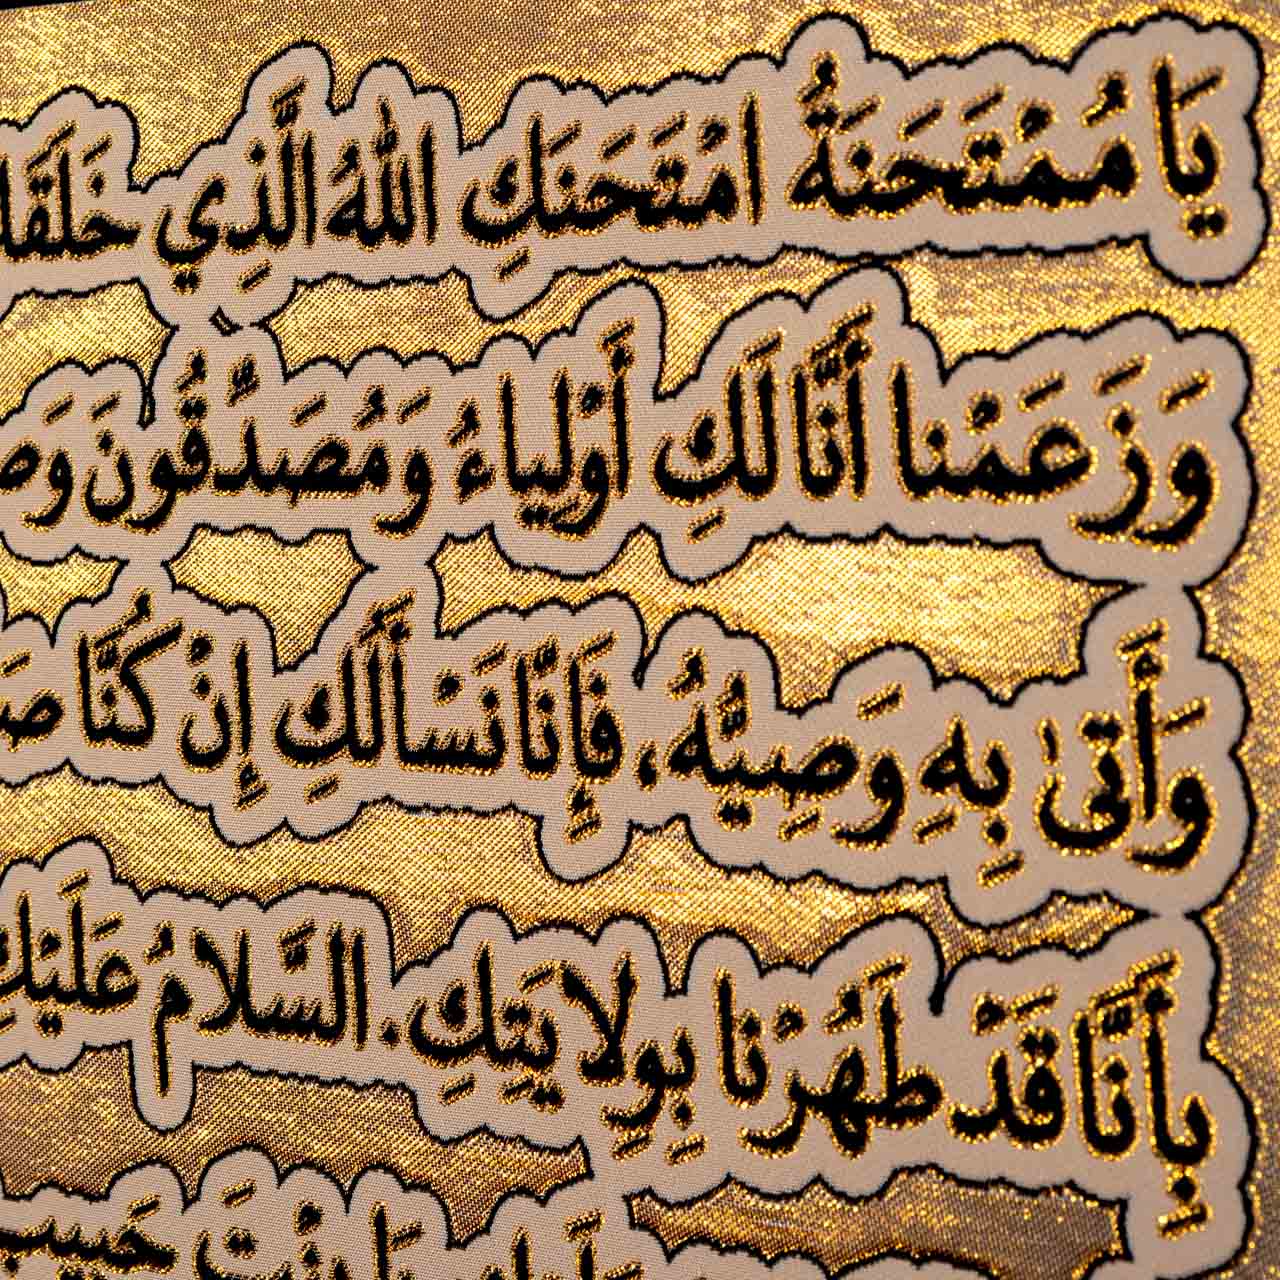 يَا مُمْتَحَنَةُ امْتَحَنَكِ اللهُ الَّذِي خَلَقَكِ
وَزَعَمْنا أَنَّا لَكِ أَوْلِياءُ وَمُصَدِّقُونَ
وَأَتىٰ بِهِ وَصِيُّهُ، فَإِنَّا نَسْأَلُكِ إِنْ كُنَّا
بِأَنَّا قَدْ طَهُرْنا بِوِلايَتِكِ. السَّلامُ عَلَيْكِ